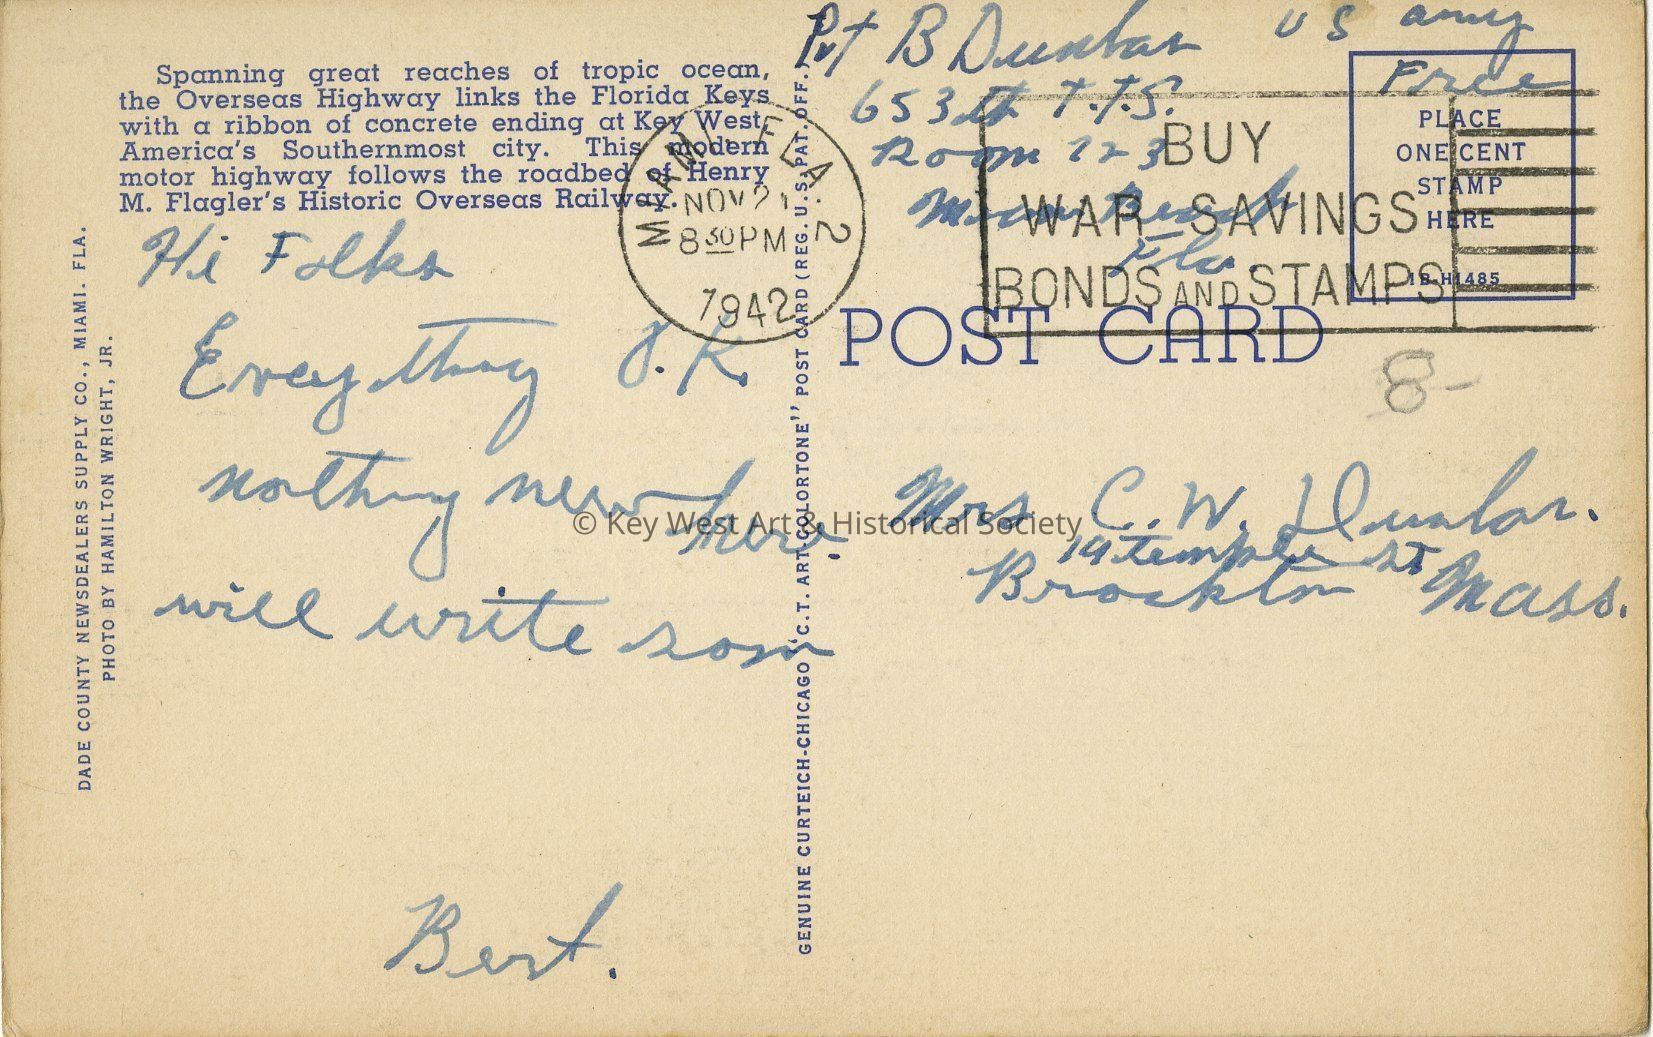 Spanning great reaches of tropic ocean,
the Overseas Highway links the Florida Keys
with a ribbon of concrete ending at Key West,
America's Southernmost city. This modern
motor highway follows the roadbed of Henry
M. Flagler's Historic Overseas Railway.
Hi Folks
Everything O.K.
nothing new here.
will write soon
Bert.
DADE COUNTY NEWSDEALERS SUPPLY CO., MIAMI. FLA.
PHOTO BY HAMILTON WRIGHT, JR.
MIAMI, FLA. 2
NOV 21
8 30 PM
1942
GENUINE CURTEICH-CHICAGO "C.T. ART COLORTONE" POST CARD (REG. U.S. PAT. OFF.)
Pvt B Dunbar US Army
653th T.T.S.
Room 123
Miami Beach
Fla.
Free
PLACE
ONE CENT
STAMP
HERE
1B-H1485
BUY
WAR SAVINGS
BONDS AND STAMPS
POST CARD
8-
Mrs C. W. Dunbar.
19 temple st
Brockton Mass.
© Key West Art & Historical Society